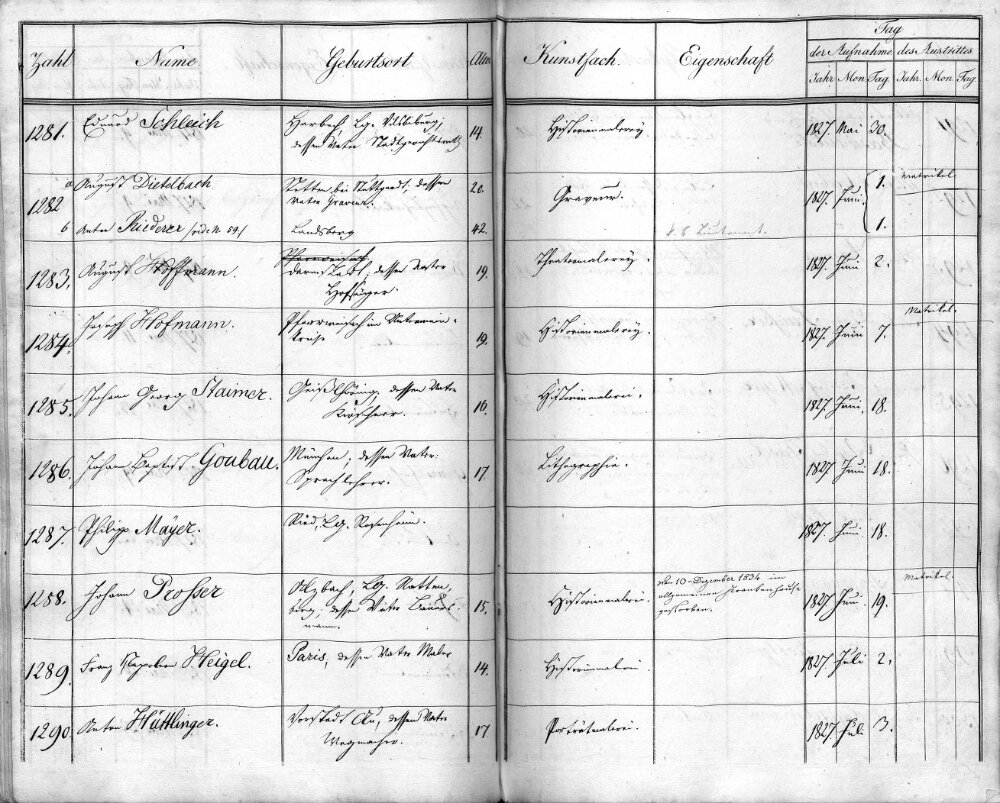 Tag
Zahl Name Geburtsort Alter Kunstfach. Eigenschaft der Aufnahme des Austrittes
Jahr Mon. Tag Jahr. Mon. Tag
1281. Eduard Schleich Harbach, Lg. Vilsbiburg; 14. Historienmalerey 1827. Mai 30.
dessen Vater
a August Dietelbach Stetten bei Stuttgardt, dessen 20. Graveur. 1827. Juni 1. Matrikel.
1282 Vater Graveur.
b Anton Riederer Landsberg 42. 1.
1283. August Hoffmann. Darmstadt, dessen Vater 19. Theatermalerey. 1827. Juni 2.
Hofsänger.
1284. Joseph Hofmann. Pfarrweisach im Untermain- 19. Historienmalerey. 1827. Juni 7. Matrikel.
kreise
1285. Johann Georg Staimer. Geiselhöring, dessen Vater 16. Historienmalerei. 1827. Juni 18.
Kirschner.
1286. Johann Baptist Goubau. München, dessen Vater 17. Lithographie. 1827 Juni 18.
Sprachlehrer.
1287. Philipp Mayer. Ried, Lg. Rosenheim. 1827. Juni 18.
1288. Johann Prosser Lg. Ratten- 15. Historienmalerei. den 10. Dezember 1834 im 1827 Juni 19. Matrikel.
berg, dessen Vater Bauers- allgemeinen Krankenhause
mann. gestorben.
1289. Franz Napoleon Heigel. Paris, dessen Vater Maler 14. Historienmalerei. 1827 Juli 2.
1290. Anton Hüttlinger. Vorstadt Au, dessen Vater 17 Porträtmalerei. 1827 Juli. 3.
Wegmacher.